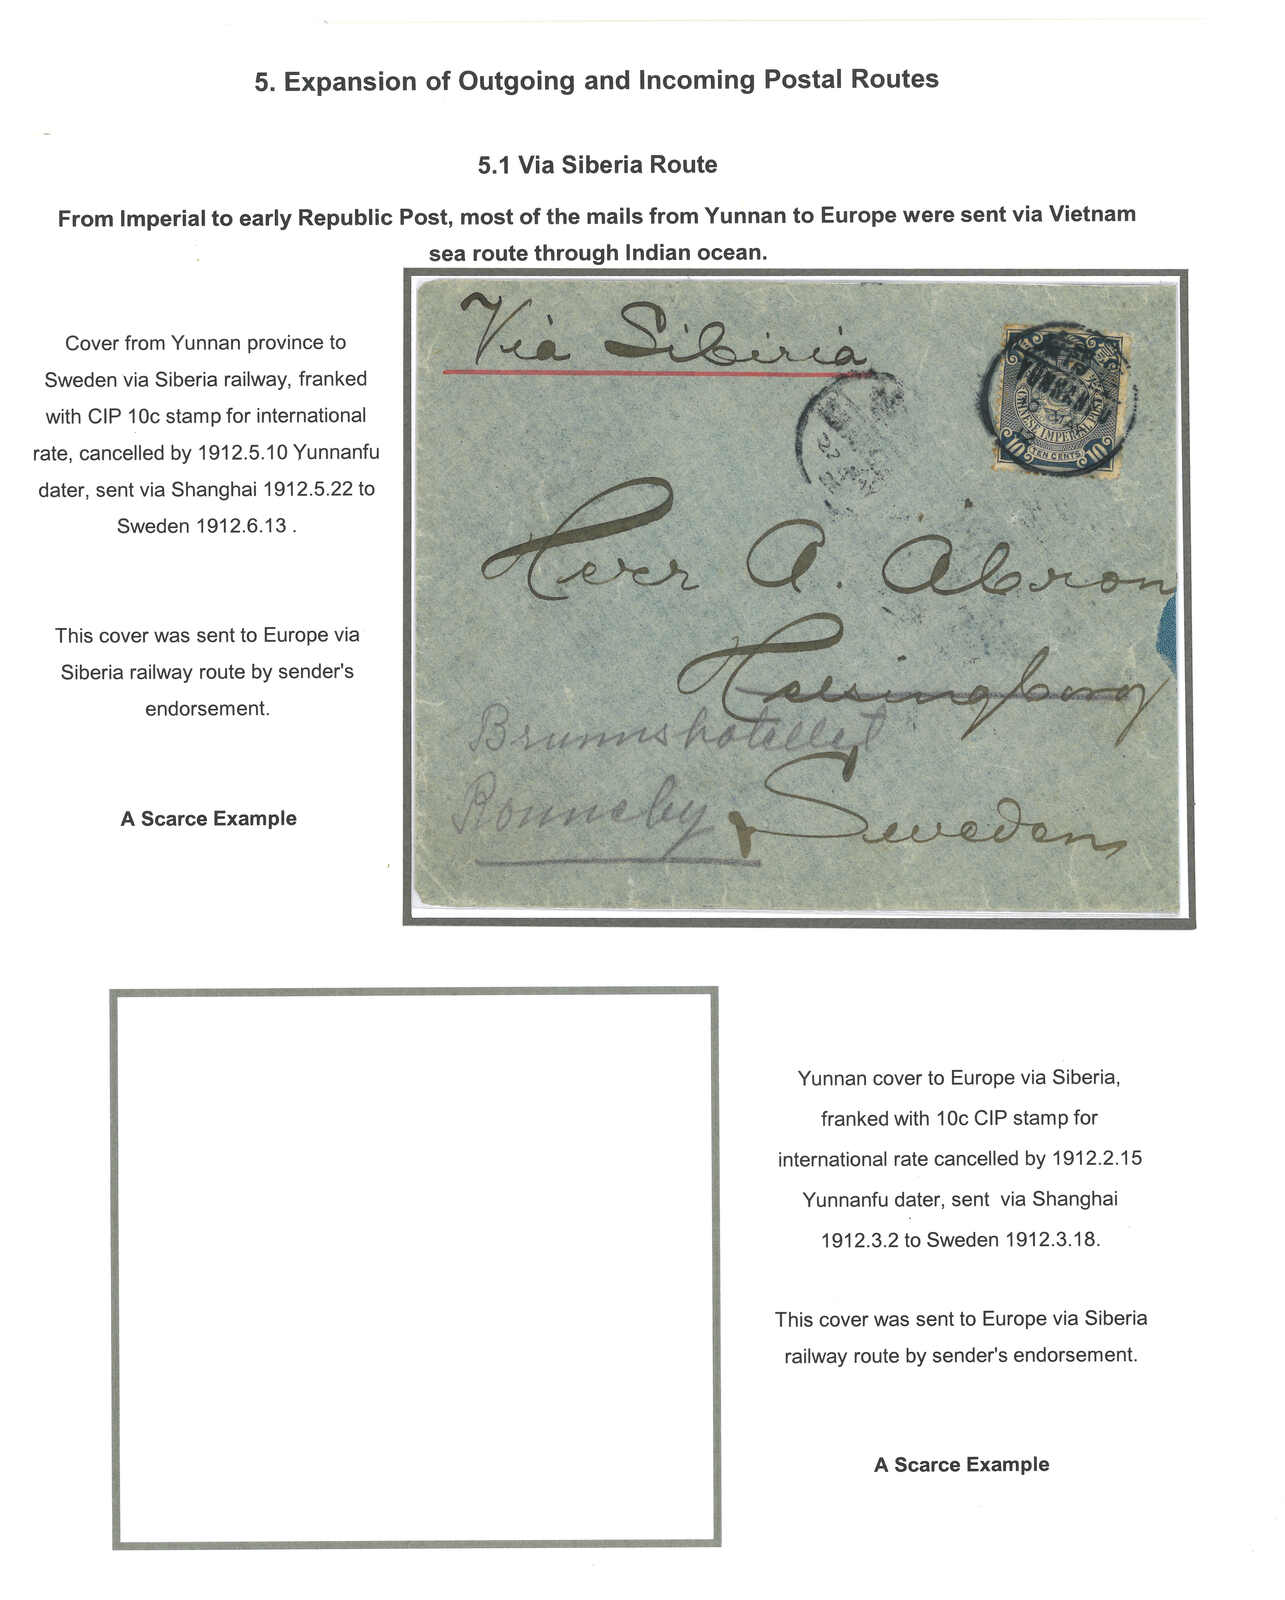 5. Expansion of Outgoing and Incoming Postal Routes
5.1 Via Siberia Route
From Imperial to early Republic Post, most of the mails from Yunnan to Europe were sent via Vietnam
sea route through Indian ocean.
Cover from Yunnan province to
Sweden via Siberia railway, franked
with CIP 10c stamp for international
rate, cancelled by 1912.5.10 Yunnanfu
dater, sent via Shanghai 1912.5.22 to
Sweden 1912.6.13 .
This cover was sent to Europe via
Siberia railway route by sender's
endorsement.
A Scarce Example
Via Sibiria
YUNNANFU
CHINESE IMPERIAL POST
10 TEN CENTS 10
22
Herr A. Abron
Helsingborg
Brunnshotellet
Ronneby
Sweden
Yunnan cover to Europe via Siberia,
franked with 10c CIP stamp for
international rate cancelled by 1912.2.15
Yunnanfu dater, sent via Shanghai
1912.3.2 to Sweden 1912.3.18.
This cover was sent to Europe via Siberia
railway route by sender's endorsement.
A Scarce Example